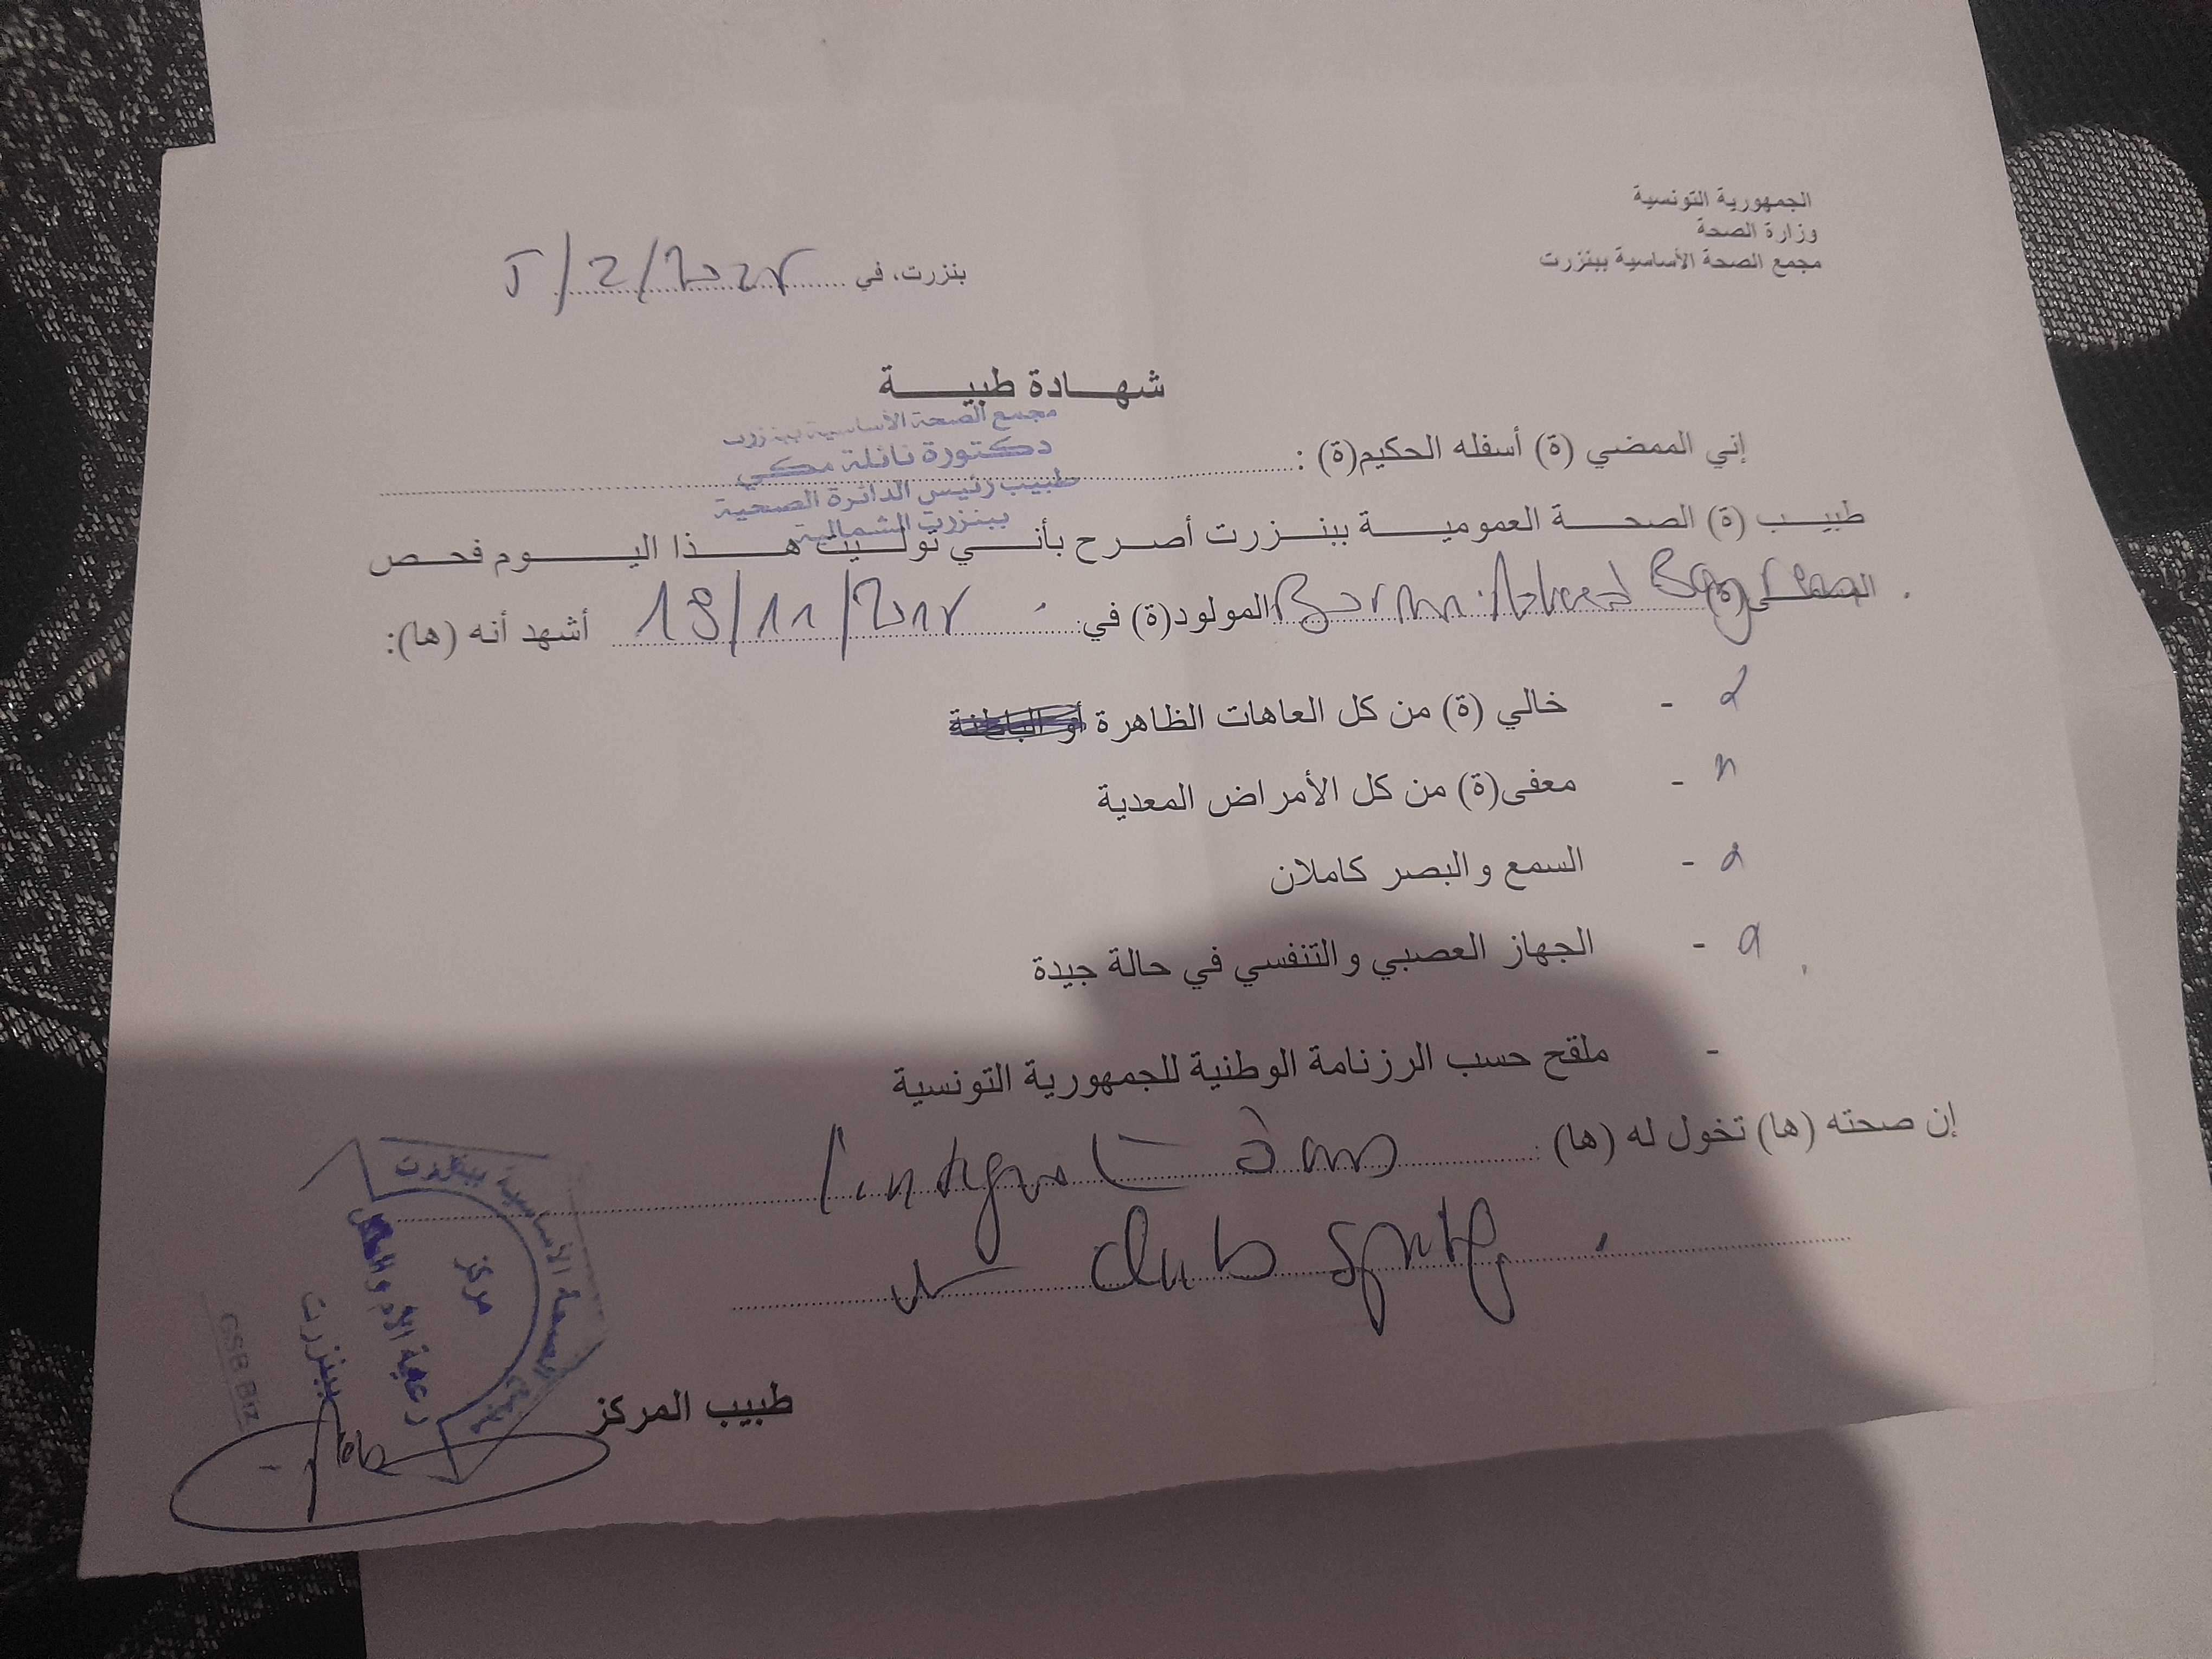 الجمهورية التونسية
وزارة الصحة
مجمع الصحة الأساسية ببنزرت
بنزرت، في 5/2/202
شهادة طبية
مجمع الصحة الأساسية ببنزرت
دكتورة نائلة مكي
طبيب رئيس الدائرة الصحية
ببنزرت الشمالية
إني الممضي (ة) أسفله الحكيم(ة) :
طبيب (ة) الصحة العمومية ببنزرت أصرح بأني توليت هذا اليوم فحص
المولود(ة) في: 19/11/201 أشهد أنه (ها):
- خالي (ة) من كل العاهات الظاهرة أو الباطنة
- معفى(ة) من كل الأمراض المعدية
- السمع والبصر كاملان
- الجهاز العصبي والتنفسي في حالة جيدة
- ملقح حسب الرزنامة الوطنية للجمهورية التونسية
إن صحته (ها) تخول له (ها) :
l'intégrat dans
un club sportif.
الصحة الأساسية ببنزرت
مركز
رعاية الأم والطفل
ببنزرت
GSB Biz
طبيب المركز